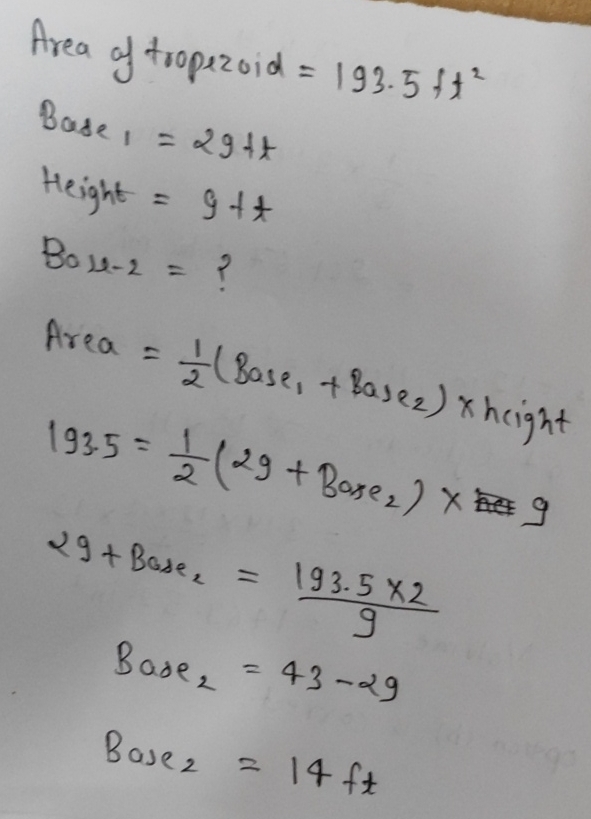 Area of tropezoid = 193.5 ft²
Base₁ = 29 ft
Height = 9 ft
Base-2 = ?
Area = 1/2 (Base₁ + Base₂) × height
193.5 = 1/2 (29 + Base₂) × 9
29 + Base₂ = 193.5 × 2 / 9
Base₂ = 43 - 29
Base₂ = 14 ft